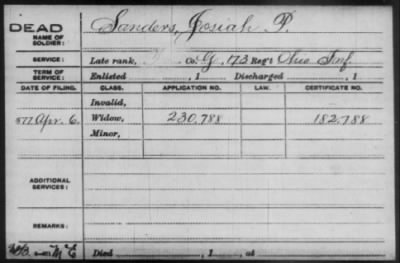 DEAD
NAME OF SOLDIER: Sanders, Josiah P.
SERVICE: Late rank, Co. G, 173 Reg't Ohio Inf.
TERM OF SERVICE: Enlisted , 1 Discharged , 1
DATE OF FILING. CLASS. APPLICATION NO. LAW. CERTIFICATE NO.
Invalid,
1877 Apr. 6. Widow, 230.788 182.788
Minor,
ADDITIONAL SERVICES:
REMARKS:
Died , 1 , at